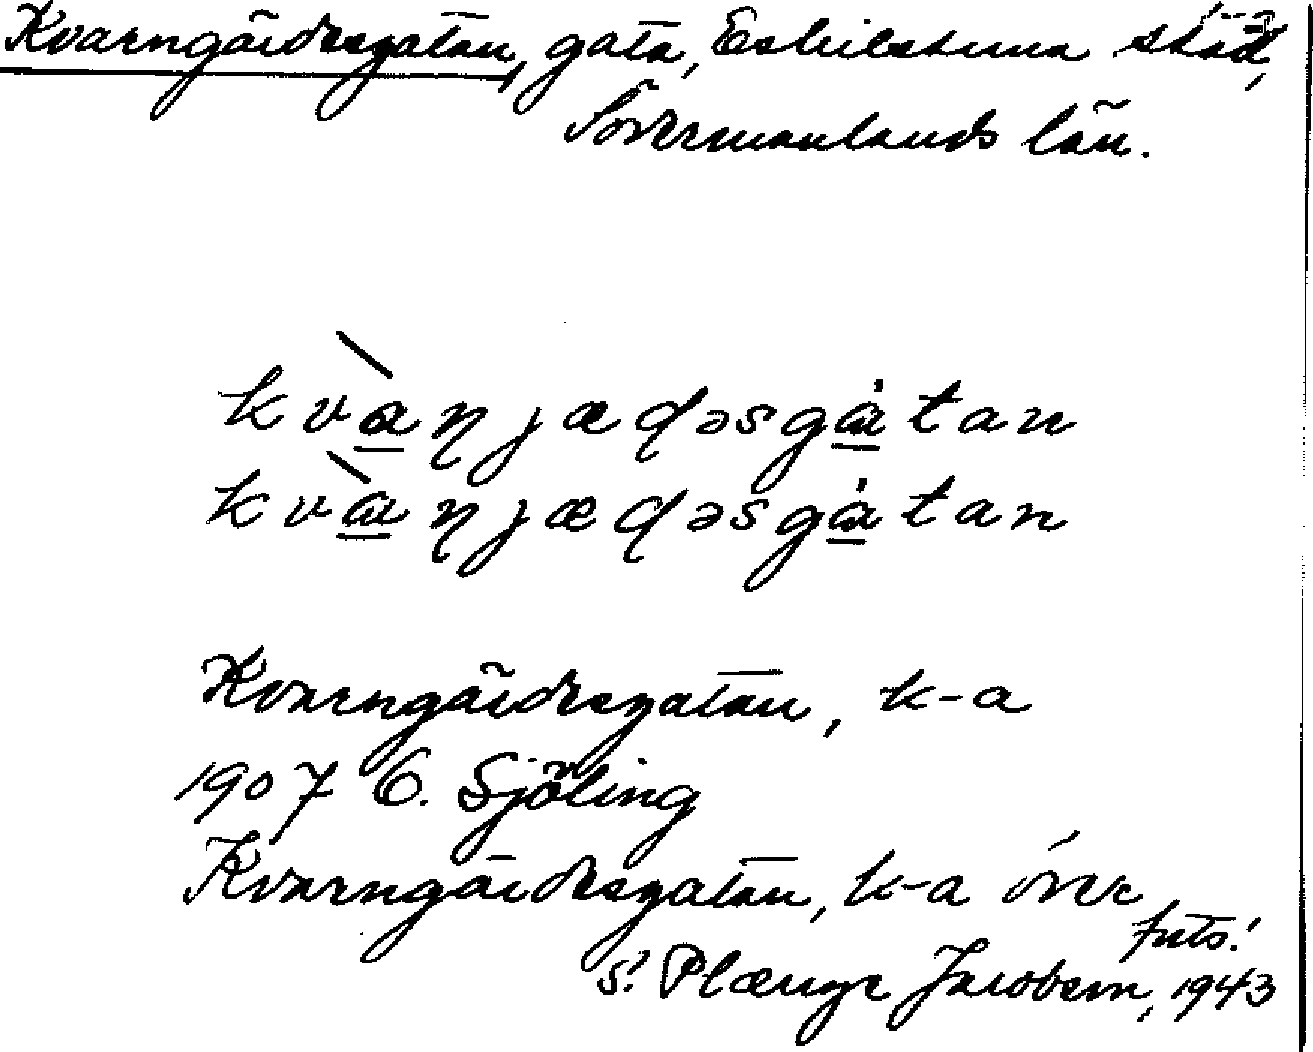 Kvarngärdesgatan, gata, Eskilstuna stad,
Södermanlands län.
kvàɳjæɖəsgȧtan
kvàɳjæɖəsgȧtan
Kvarngärdesgatan, k-a
1907 C. Sjöling
Kvarngärdesgatan, k-a över
forts!
S. Plænge Jacobson, 1943